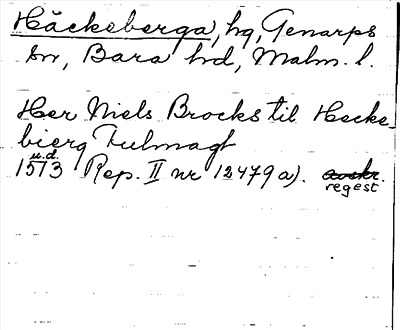 Häckeberga, hg, Genarps
sn, Bara hd, Malm. l.
Her Niels Brocks til Hecke-
bierg Fulmagt
u.d.
1513 Rep. II nr 12479 a). avskr.
regest